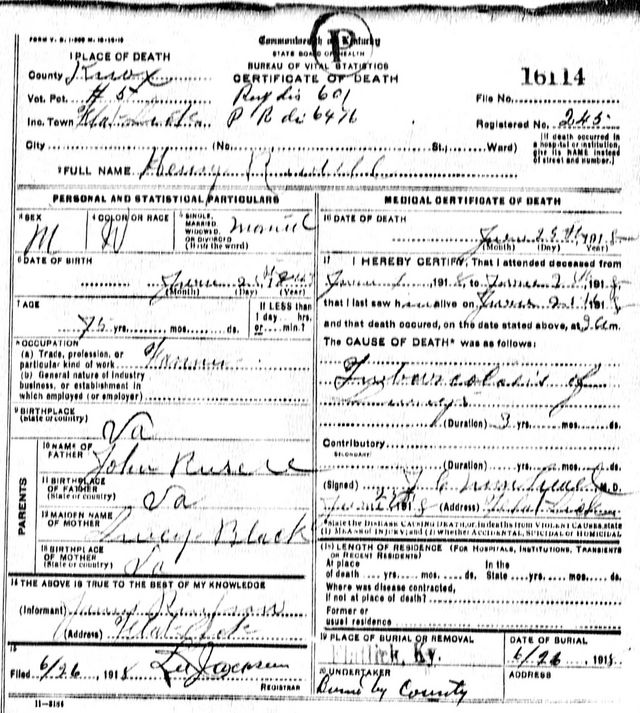 FORM V. S. 1-
P
Commonwealth of Kentucky
STATE BOARD OF HEALTH
BUREAU OF VITAL STATISTICS
CERTIFICATE OF DEATH
16114
1 PLACE OF DEATH
County Knox
Vot. Pct. #5 Reg dis 601
Inc. Town Flat Lick P R dis 6476
City (No. St.; Ward)
File No.
Registered No. 245
(If death occurred in a hospital or institution, give its NAME instead of street and number.)
2 FULL NAME Henry
PERSONAL AND STATISTICAL PARTICULARS
3 SEX M
4 COLOR OR RACE W
5 SINGLE, MARRIED, WIDOWED, OR DIVORCED (Write the word) Married
6 DATE OF BIRTH
June
(Month) (Day) (Year)
7 AGE
75 yrs. mos. ds.
If LESS than 1 day hrs. or min.?
8 OCCUPATION
(a) Trade, profession, or particular kind of work Farmer
(b) General nature of industry business, or establishment in which employed (or employer)
9 BIRTHPLACE
(State or country) Va
PARENTS
10 NAME OF FATHER John
11 BIRTHPLACE OF FATHER (State or country) Va
12 MAIDEN NAME OF MOTHER Black
13 BIRTHPLACE OF MOTHER (State or country) Va
14 THE ABOVE IS TRUE TO THE BEST OF MY KNOWLEDGE
(Informant)
(Address) Flat Lick
15
Filed 6/26, 1918 Lee Jackson
REGISTRAR
11-3184
MEDICAL CERTIFICATE OF DEATH
16 DATE OF DEATH
June 25th 1918
(Month) (Day) (Year)
17 I HEREBY CERTIFY, That I attended deceased from
June 1, 1918, to June 1918
that I last saw him alive on June 191
and that death occured, on the date stated above, at m.
The CAUSE OF DEATH* was as follows:
Tubarcolosis of
Lungs
(Duration) 3 yrs. mos. ds.
Contributory
SECONDARY
(Duration) yrs. mos. ds.
(Signed) M.D.
191 (Address) Flat Lick
*State the DISEASE CAUSING DEATH, or, in deaths from VIOLENT CAUSES, state (1) MEANS OF INJURY; and (2) whether ACCIDENTAL, SUICIDAL or HOMICIDAL
18 LENGTH OF RESIDENCE (FOR HOSPITALS, INSTITUTIONS, TRANSIENTS OR RECENT RESIDENTS)
At place of death yrs. mos. ds. In the State yrs. mos. ds.
Where was disease contracted, if not at place of death?
Former or usual residence
19 PLACE OF BURIAL OR REMOVAL
Flatlick, Ky.
DATE OF BURIAL
6/26, 1918
20 UNDERTAKER
Buried by County
ADDRESS